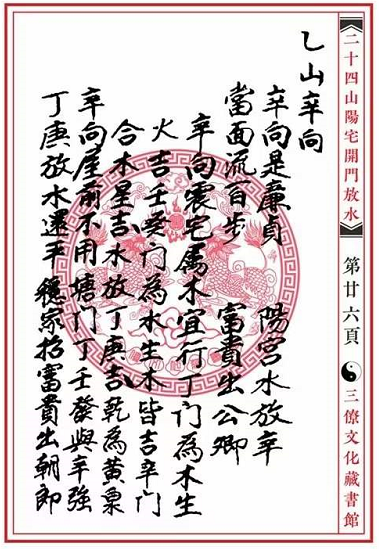 《二十四山陽宅開門放水》 第廿六頁 三僚文化藏書館
乙山辛向
辛向是廉貞 陽宮水放辛
當面流百步 富貴出公卿
辛向震宅屬木宜行丁门為木生
火吉壬癸门為水生木皆吉辛门
合木星吉水放丁庚吉乾為黃泉
辛向屋前不用塘门丁壬發與辛強
丁庚放水還平穩家招富貴出朝郎